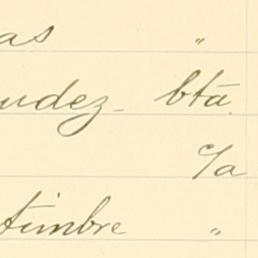 as "
udez bta
c/a
timbre "